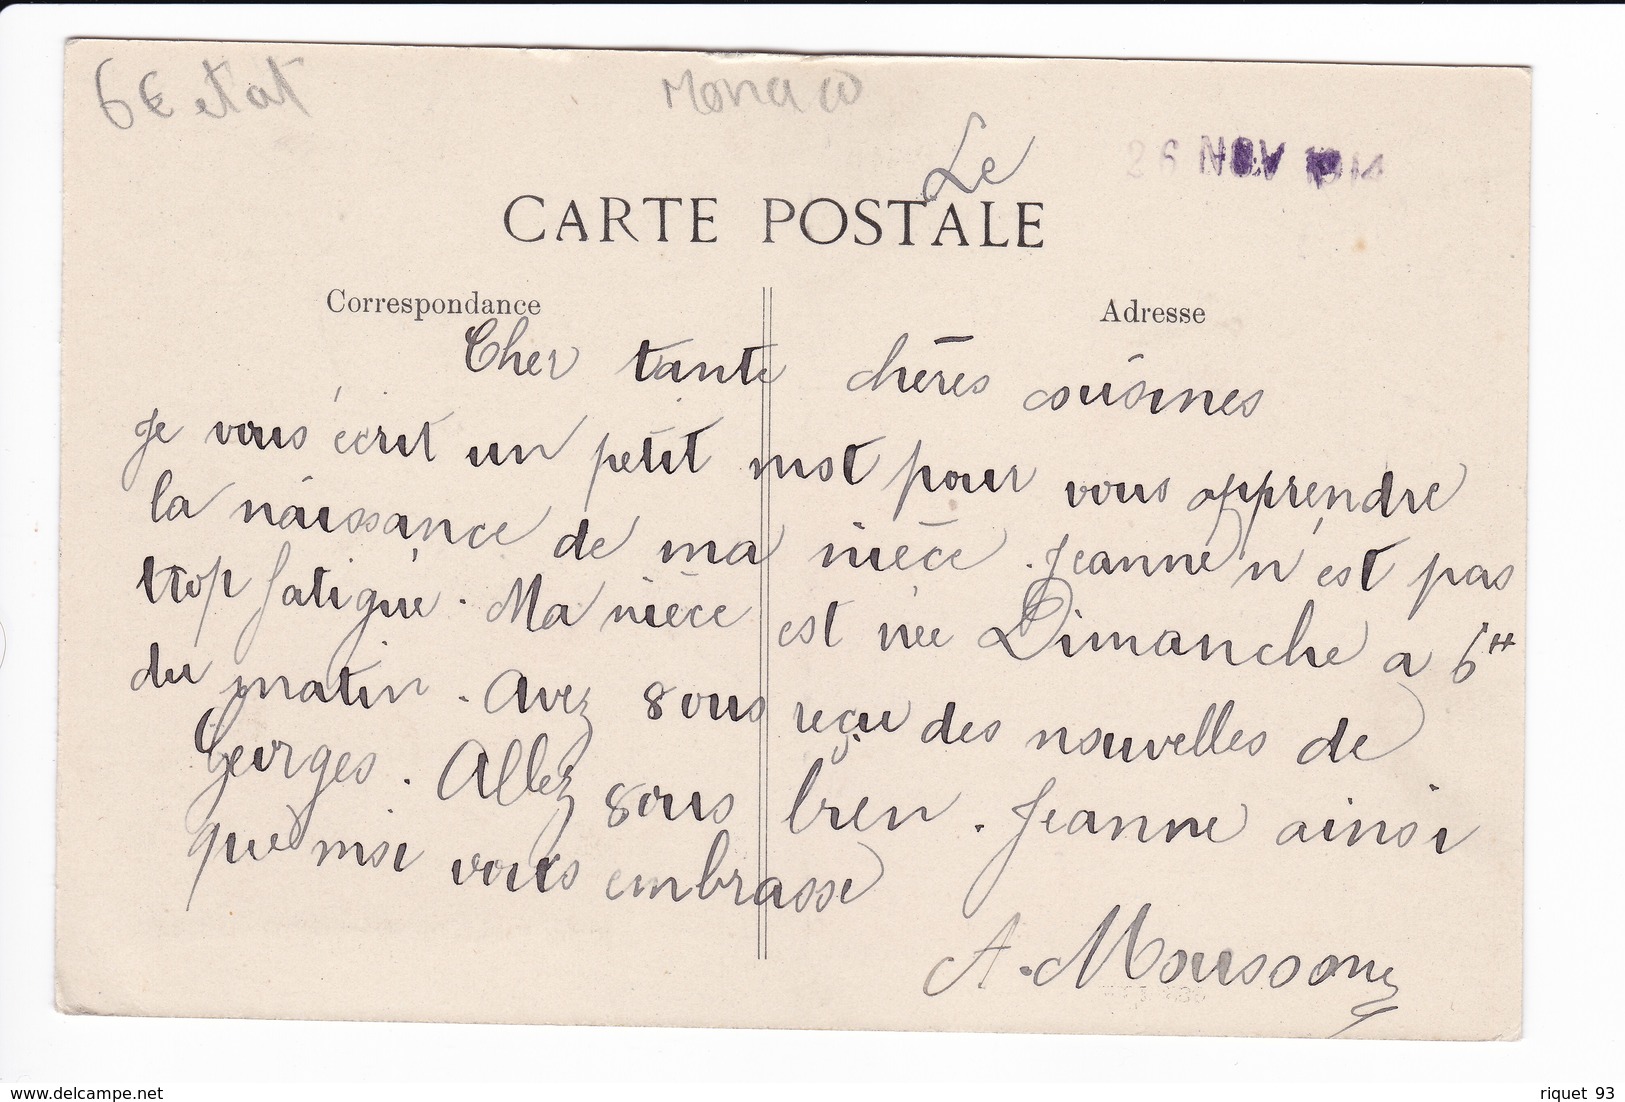 6€ etat
Monaco
Le
26 NOV 1914
CARTE POSTALE
Correspondance
Adresse
Cher tante chères cousines
je vous écrit un petit mot pour vous apprendre
la naissance de ma nièce. Jeanne n'est pas
trop fatigué. Ma nièce est née Dimanche a 6H
du matin. Avez vous reçu des nouvelles de
Georges. Allez vous bien. Jeanne ainsi
que moi vous embrasse
A. Moussong
delcampe.net
riquet 93